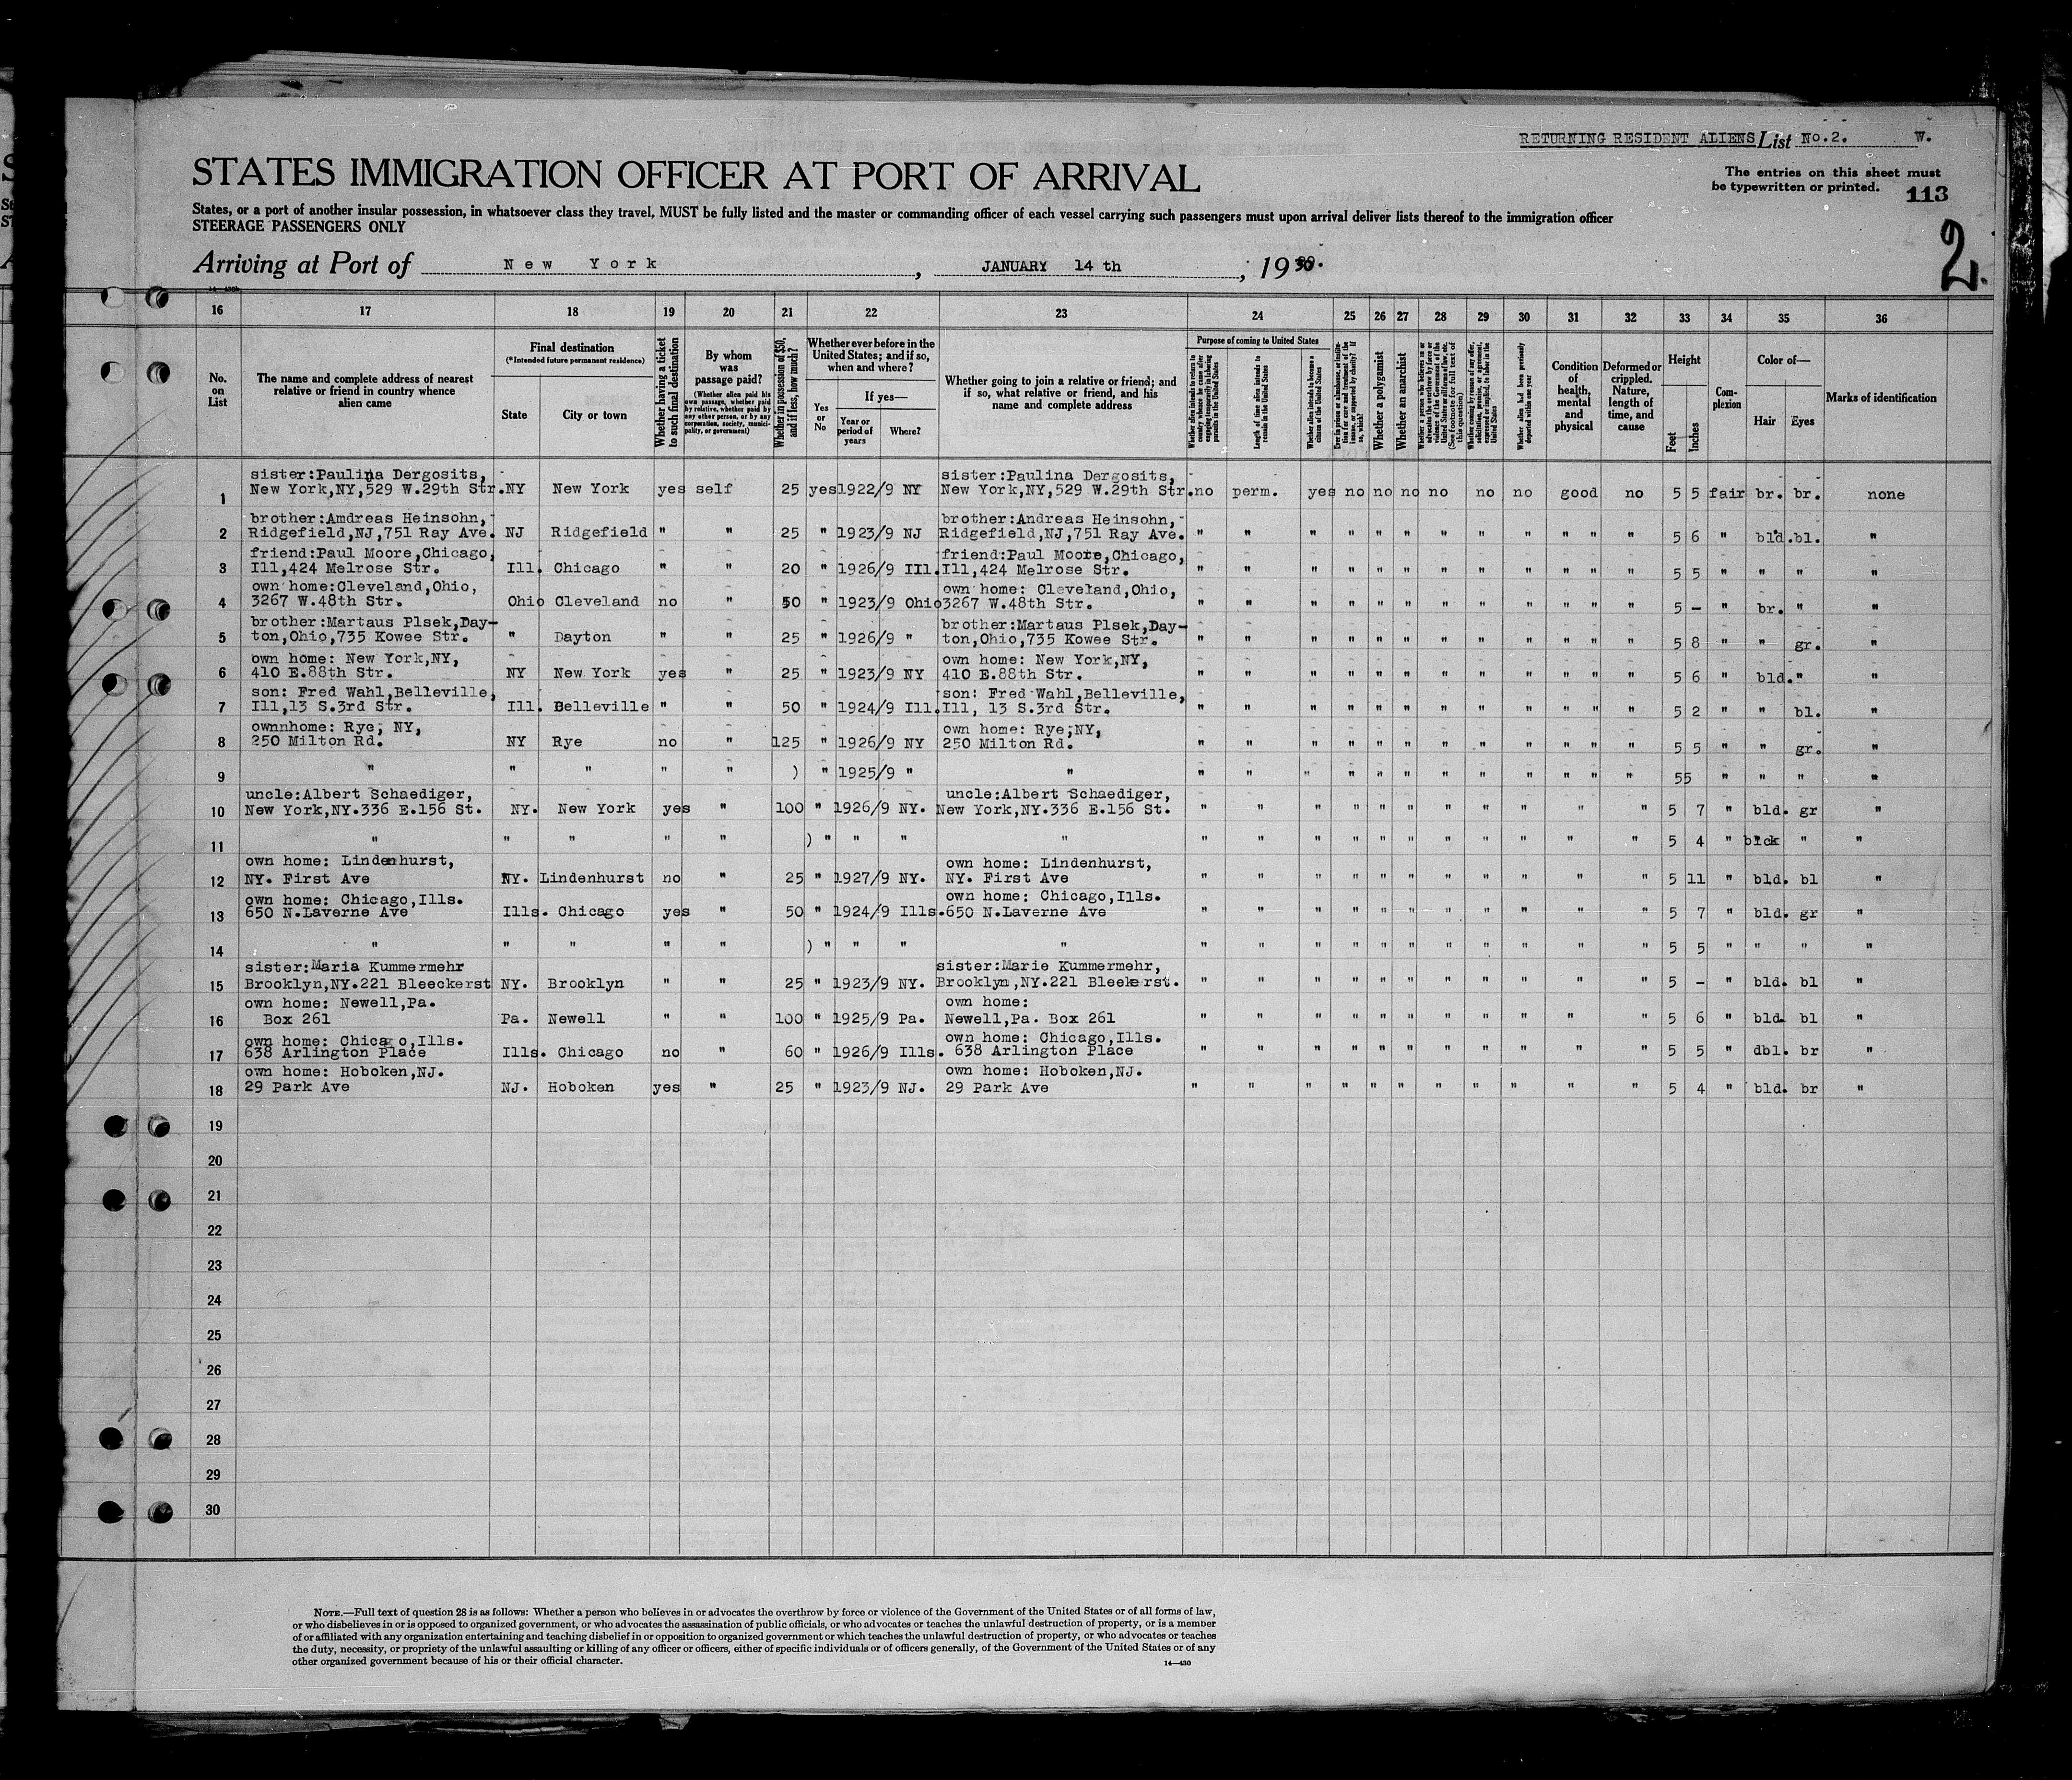 RETURNING RESIDENT ALIENS List No.2. W.
STATES IMMIGRATION OFFICER AT PORT OF ARRIVAL
The entries on this sheet must
be typewritten or printed. 113
States, or a port of another insular possession, in whatsoever class they travel, MUST be fully listed and the master or commanding officer of each vessel carrying such passengers must upon arrival deliver lists thereof to the immigration officer
STEERAGE PASSENGERS ONLY
2.
Arriving at Port of New York, JANUARY 14 th, 1930.
16 17 18 19 20 21 22 23 24 25 26 27 28 29 30 31 32 33 34 35 36
No. on List
The name and complete address of nearest relative or friend in country whence alien came
Final destination
(*Intended future permanent residence)
State
City or town
Whether having a ticket to such final destination
By whom was passage paid?
(Whether alien paid his own passage, whether paid by relative, whether paid by any other person, or by any corporation, society, municipality, or government)
Whether in possession of $50, and if less, how much?
Whether ever before in the United States; and if so, when and where?
Yes or No
If yes—
Year or period of years
Where?
Whether going to join a relative or friend; and if so, what relative or friend, and his name and complete address
Purpose of coming to United States
Whether alien intends to return to country whence he came after engaging temporarily in laboring pursuits in the United States
Length of time alien intends to remain in the United States
Whether alien intends to become a citizen of the United States
Whether a polygamist
Whether an anarchist
(See footnote for full text of this question)
Whether alien had been previously deported within one year
Condition of health, mental and physical
Deformed or crippled. Nature, length of time, and cause
Height
Feet
Inches
Complexion
Color of—
Hair
Eyes
Marks of identification
sister:Paulina Dergosits, sister:Paulina Dergosits,
1 New York,NY,529 W.29th Str. NY New York yes self 25 yes 1922/9 NY New York,NY,529 W.29th Str. no perm. yes no no no no no no good no 5 5 fair br. br. none
brother:Amdreas Heinsohn, brother:Andreas Heinsohn,
2 Ridgefield,NJ,751 Ray Ave. NJ Ridgefield " " 25 " 1923/9 NJ Ridgefield,NJ,751 Ray Ave. " " " " " " " " " " " " 5 6 " bld. bl. "
friend:Paul Moore,Chicago, friend:Paul Moore,Chicago,
3 Ill,424 Melrose Str. Ill. Chicago " " 20 " 1926/9 Ill. Ill,424 Melrose Str. " " " " " " " " " " " " 5 5 " " " "
own home:Cleveland,Ohio, own home: Cleveland,Ohio,
4 3267 W.48th Str. Ohio Cleveland no " 50 " 1923/9 Ohio 3267 W.48th Str. " " " " " " " " " " " " 5 - " br. " "
brother:Martaus Plsek,Day- brother:Martaus Plsek,Day-
5 ton,Ohio,735 Kowee Str. " Dayton " " 25 " 1926/9 " ton,Ohio,735 Kowee Str. " " " " " " " " " " " " 5 8 " " gr. "
own home: New York,NY, own home: New York,NY,
6 410 E.88th Str. NY New York yes " 25 " 1923/9 NY 410 E.88th Str. " " " " " " " " " " " " 5 6 " bld. " "
son: Fred Wahl,Belleville, son: Fred Wahl,Belleville,
7 Ill,13 S.3rd Str. Ill. Belleville " " 50 " 1924/9 Ill. Ill, 13 S.3rd Str. " " " " " " " " " " " " 5 2 " " bl. "
ownnhome: Rye, NY, own home: Rye,NY,
8 250 Milton Rd. NY Rye no " 125 " 1926/9 NY 250 Milton Rd. " " " " " " " " " " " " 5 5 " " gr. "
9 " " " " " ) " 1925/9 " " " " " " " " " " " " " " " 55 " " " "
uncle:Albert Schaediger, uncle:Albert Schaediger,
10 New York,NY.336 E.156 St. NY. New York yes " 100 " 1926/9 NY. New York,NY.336 E.156 St. " " " " " " " " " " " 5 7 " bld. gr "
11 " " " " " ) " " " " " " " " " " " " " " " 5 4 " blck " "
own home: Lindenhurst, own home: Lindenhurst,
12 NY. First Ave NY. Lindenhurst no " 25 " 1927/9 NY. NY. First Ave " " " " " " " " " " " 5 11 " bld. bl "
own home: Chicago,Ills. own home: Chicago,Ills.
13 650 N.Laverne Ave Ills. Chicago yes " 50 " 1924/9 Ills. 650 N.Laverne Ave " " " " " " " " " " " 5 7 " bld. gr "
14 " " " " " ) " " " " " " " " " " " " " " " 5 5 " " " "
sister:Maria Kummermehr sister:Marie Kummermehr,
15 Brooklyn,NY.221 Bleeckerst NY. Brooklyn " " 25 " 1923/9 NY. Brooklyn,NY.221 Bleekerst. " " " " " " " " " " " 5 - " bld. bl "
own home: Newell,Pa. own home:
16 Box 261 Pa. Newell " " 100 " 1925/9 Pa. Newell,Pa. Box 261 " " " " " " " " " " " 5 6 " bld. bl "
own home: Chicago,Ills. own home: Chicago,Ills.
17 638 Arlington Place Ills. Chicago no " 60 " 1926/9 Ills. 638 Arlington Place " " " " " " " " " " " 5 5 " dbl. br "
own home: Hoboken,NJ. own home: Hoboken,NJ.
18 29 Park Ave NJ. Hoboken yes " 25 " 1923/9 NJ. 29 Park Ave " " " " " " " " " " " 5 4 " bld. br "
19
20
21
22
23
24
25
26
27
28
29
30
NOTE.—Full text of question 28 is as follows: Whether a person who believes in or advocates the overthrow by force or violence of the Government of the United States or of all forms of law,
or who disbelieves in or is opposed to organized government, or who advocates the assassination of public officials, or who advocates or teaches the unlawful destruction of property, or is a member
of or affiliated with any organization entertaining and teaching disbelief in or opposition to organized government or which teaches the unlawful destruction of property, or who advocates or teaches
the duty, necessity, or propriety of the unlawful assaulting or killing of any officer or officers, either of specific individuals or of officers generally, of the Government of the United States or of any
other organized government because of his or their official character.
14—430